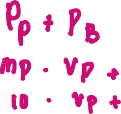 Pp + PB
mp · vp +
10 · vp +